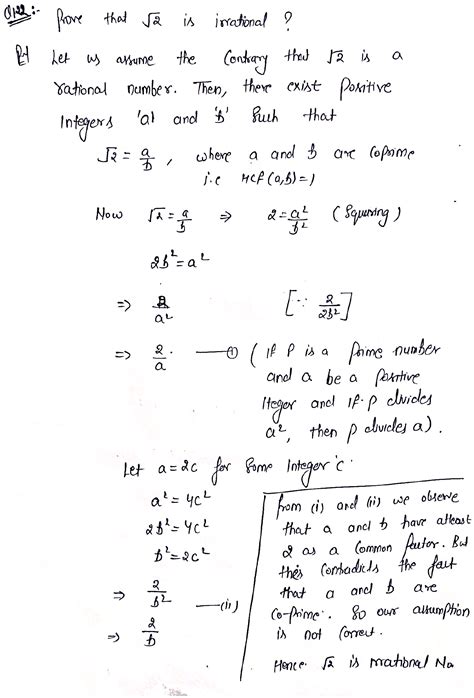 Q122:- Prove that √2 is irrational ?
Let us assume the Contrary that √2 is a
rational number. Then, there exist Positive
Integers 'a' and 'b' Such that
√2 = a/b , where a and b are coprime
i.e HCF(a,b)=1
Now √2 = a/b ⇒ 2 = a²/b² (Squaring)
2b² = a²
⇒ 2/a² [∵ 2/2b²]
⇒ 2/a. —(i) (If P is a Prime number
and a be a Positive
Iteger and If P divides
a², then p divides a).
Let a = 2c for Some Integer 'c'.
a² = 4c²
2b² = 4c²
b² = 2c²
⇒ 2/b² —(ii)
⇒ 2/b
from (i) and (ii) we observe
that a and b have atleast
2 as a Common factor. But
this Contradicts the fact
that a and b are
Co-prime. So our assumption
is not Correct.
Hence √2 is irrational No